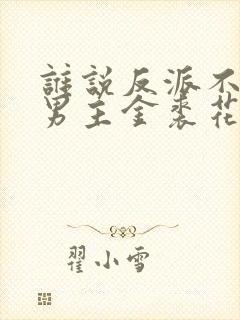 誰說反派不
男主全裘花
翟小雪